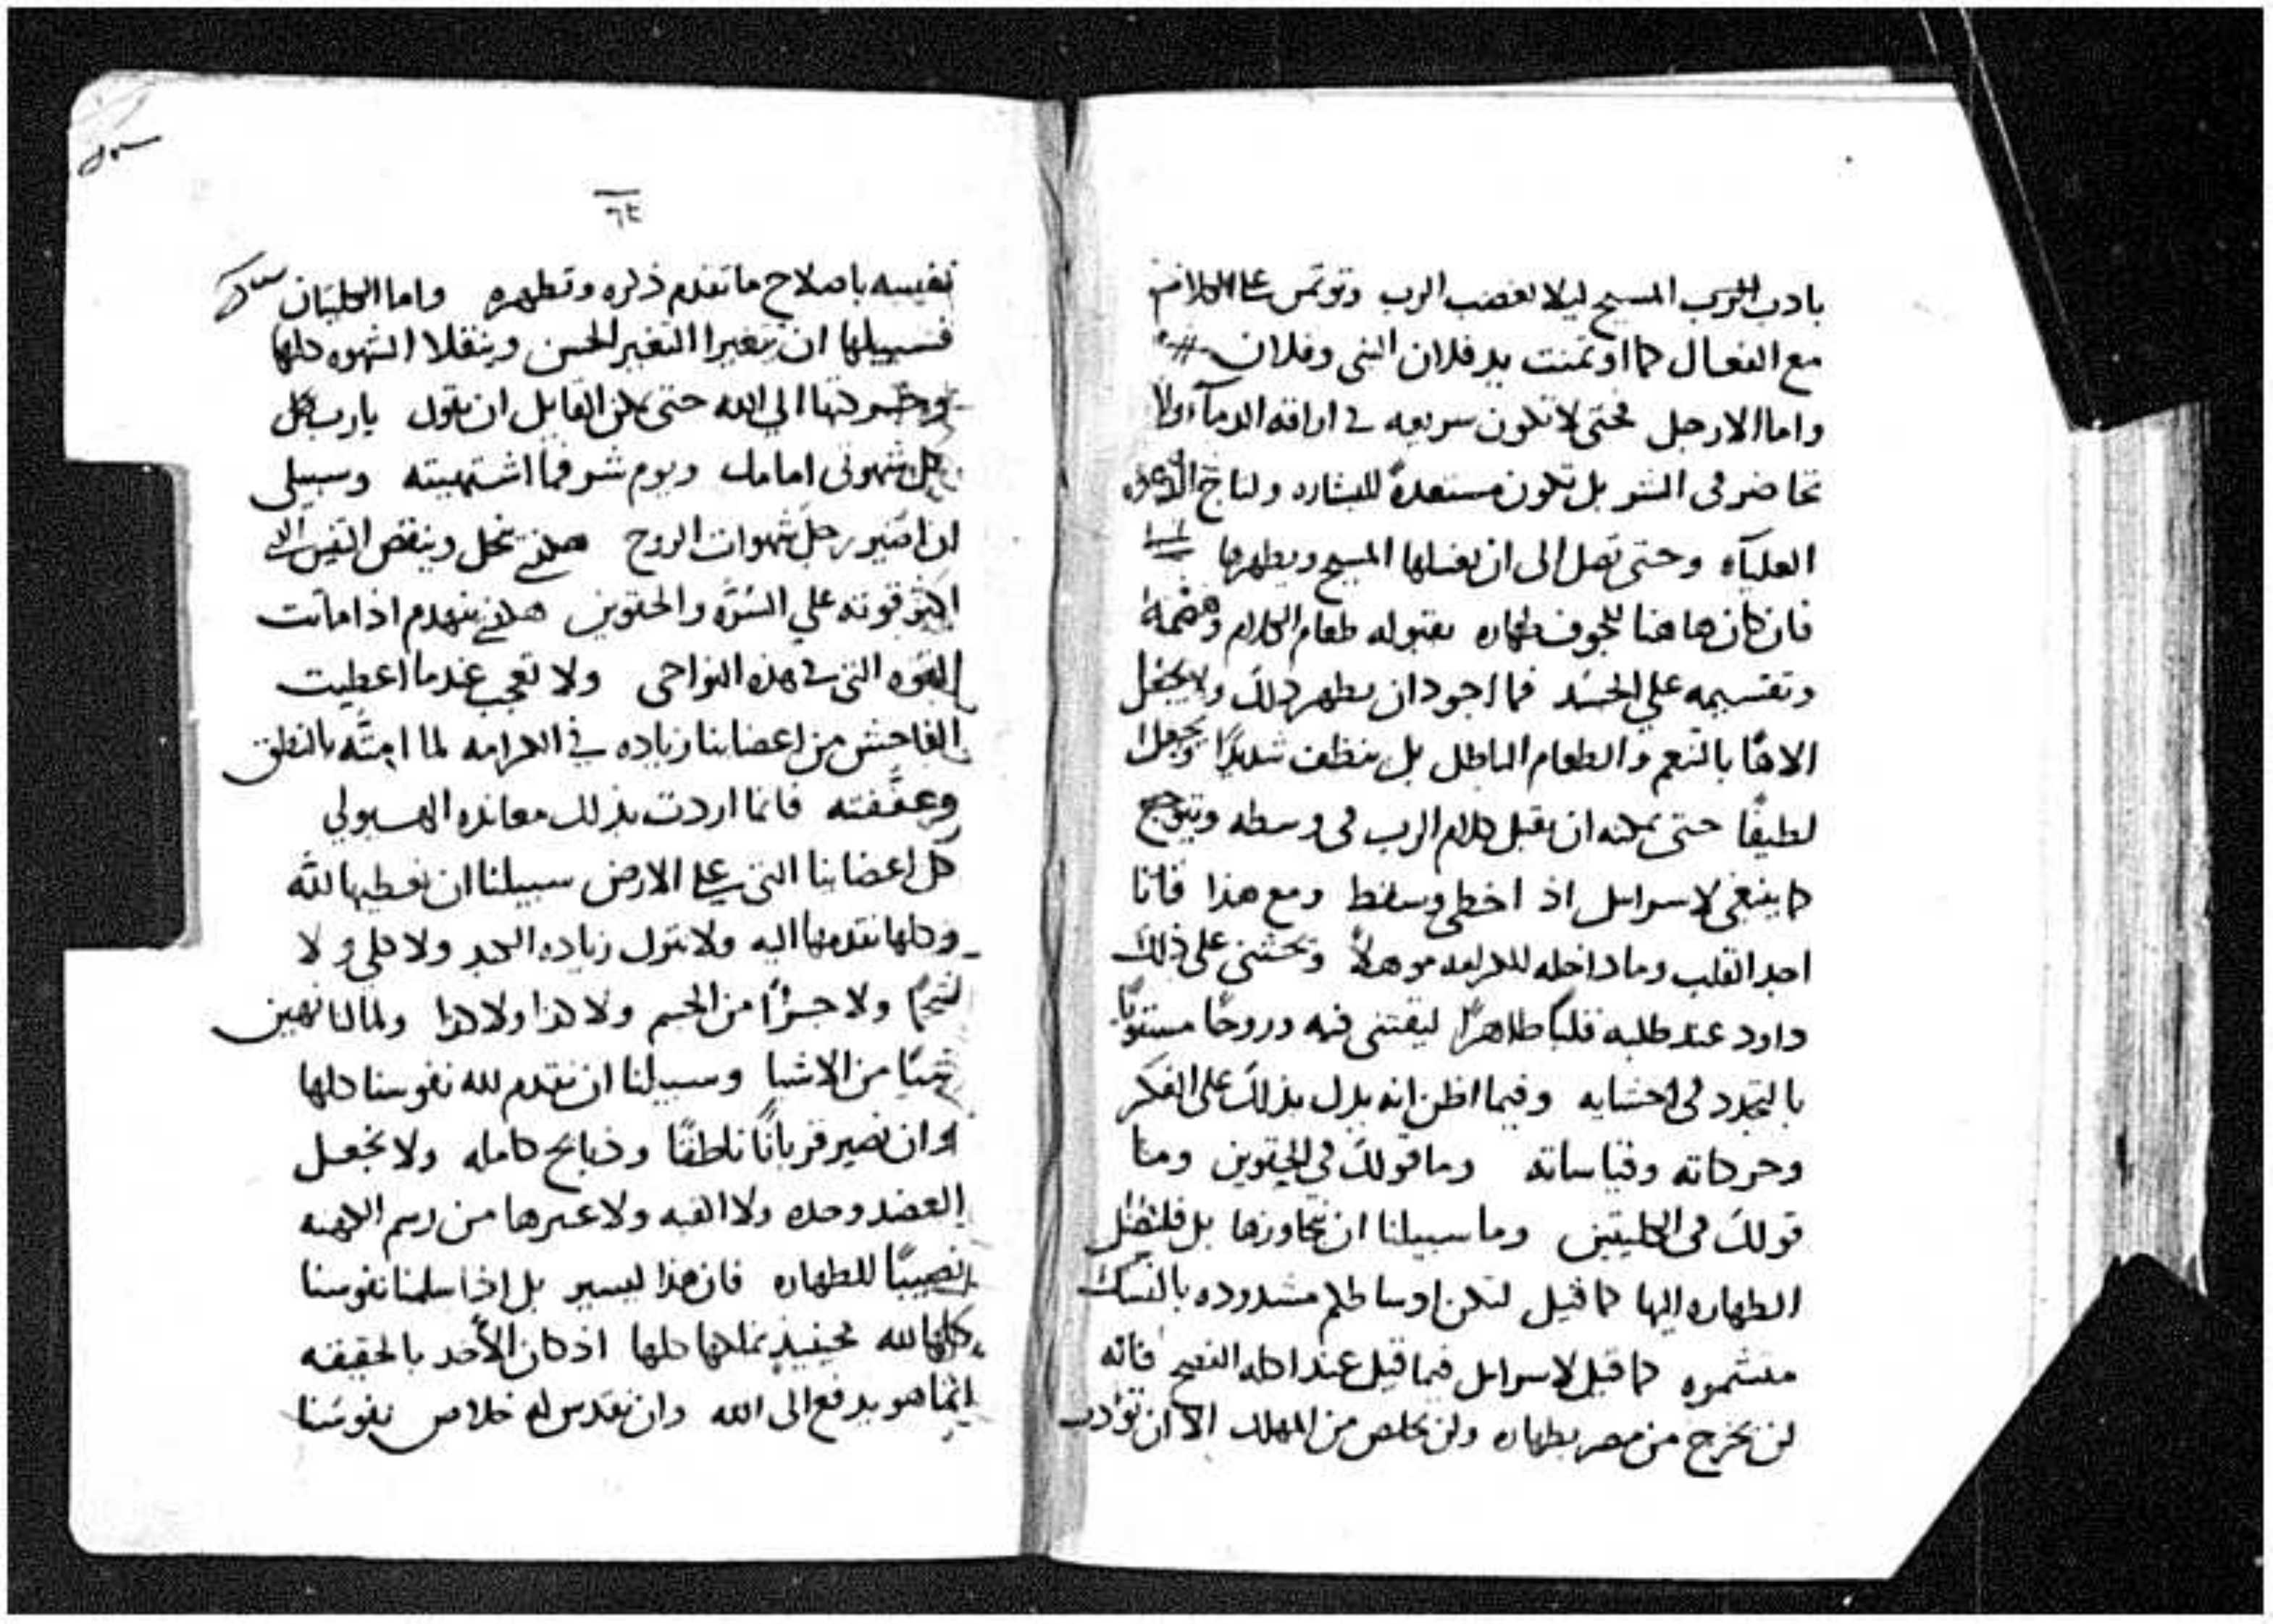 بادب الرب المسيح ليلا يغضب الرب وتوتمن على الكلام
مع الفعال كما اوتمنت يد فلان النبى وفلان
واما الارجل فحتى لا تكون سريعه فى اراقه الدمآ ولا
تحاضر فى الشر بل تكون مستعدة للبشاره ولناج الدعوه
العلياه وحتى تصل الى ان يغسلها المسيح ويطهرها
فان كان هاهنا للجوف طهاره بقبوله طعام الكلام وهضمة
وتقسيمه على الجسد فما اجود ان يطهر ذلك ولا يجعل
الاهًا بالتنعم والطعام الباطل بل ينظف شديدًا ويجعل
لطيفًا حتى يمكنه ان يقبل كلام الرب فى وسطه ويتوجع
كما ينبغى لاسراىل اذ اخطى وسقط ومع هذا فانا
اجد القلب وما داخله للكرامه موهلًا ويحثنى على ذلك
داود عند طلبه قلبًا طاهرًا ليقتنى فيه وروحًا مستويًا
بالتجدد فى احشايه وفيما اظن انه يدل بذلك على الفكر
وحركاته وقياساته وما قولك فى الحقوين وما
قولك فى الكليتين وما سبيلنا ان نتجاوزها بل فلتصل
الطهاره اليها كما قيل لتكن اوساطكم مشدوده بالنسك
متشمره كما قيل لاسراىل فيما قيل عند اكله الفصح فانه
لن يخرج من مصر بطهاره ولن يخلص من المهلك الا ان تودب
٦٤
نفسه باصلاح ما تقدم ذكره وتطهره واما الكليتان
فسبيلها ان يتغيرا التغير الحسن وينقلا الشهوه كلها
الى الله حتى يمكن القايل ان يقول يارب كل
كل شهوتى امامك ويوم شر فما اشتهيته وسبيلى
ان اصير رجل شهوات الروح هكذى يحل وينقض التنين
اكثر قوته على السرّه والحقوين هكذى ينهدم اذا ماتت
القوه التى فى هذه النواحى ولا تعجب عندما اعطيت
الفاحش من اعضاينا زياده فى الكرامه لما امتّه بالنطق
وعففته فانما اردت بذلك معانده الهيولى
كل اعضاينا التى على الارض سبيلنا ان نعطيها لله
وكلها نقدمها اليه ولا نترك زياده الكبد ولا كلى ولا
شحمًا ولا جزًا من الجسم ولا كذا ولا كذا ولما لنا نهين
شيًا من الاشيا وسبيلنا ان نقدم لله نفوسنا كلها
وان نصير قربانًا ناطقًا وذبايح كامله ولا نجعل
العضد وحده ولا القبه ولا غيرها من رسم الكهنه
نصيبًا للطهاره فان هذا ليسير بل اذا سلمنا نفوسنا
كلها لله فحينيذ نملكها كلها اذ كان الأخد بالحقيقه
انما هو يدفع الى الله وان نقدس له خلاص نفوسنا